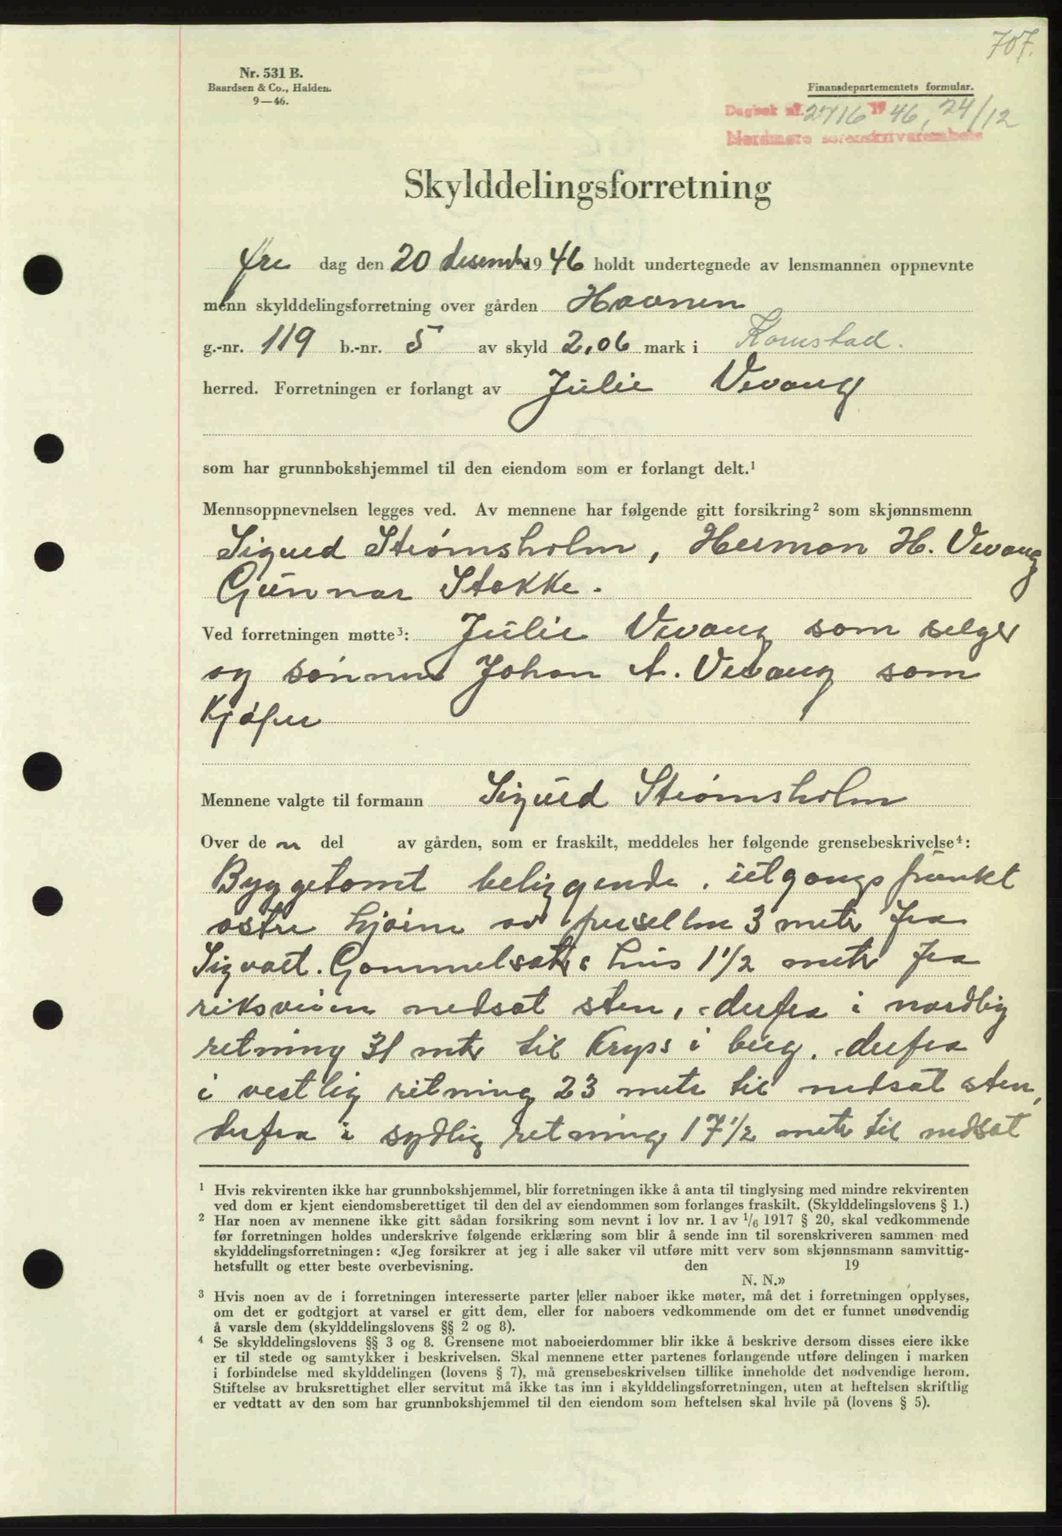 707.
Nr. 531 B.
Baardsen & Co., Halden.
9—46.
Finansdepartementets formular.
Dagbok nr. 2716 19 46, 24/12
Nordmøre sorenskriverembete
Skylddelingsforretning
Fre dag den 20 desember 1946 holdt undertegnede av lensmannen oppnevnte
menn skylddelingsforretning over gården Haanen
g.-nr. 119 b.-nr. 5 av skyld 2,06 mark i Kornstad.
herred. Forretningen er forlangt av Julie Vevang
som har grunnbokshjemmel til den eiendom som er forlangt delt.¹
Mennsoppnevnelsen legges ved. Av mennene har følgende gitt forsikring² som skjønnsmenn
Sigurd Strømsholm, Herman H. Vevang
Gunnar Stokke.
Ved forretningen møtte³: Julie Vevang som selger
og sønnen Johan A. Vevang som
kjøper
Mennene valgte til formann Sigurd Strømsholm
Over de n del av gården, som er fraskilt, meddeles her følgende grensebeskrivelse⁴:
Byggetomt beliggende. utgangspunkt
østre hjørne av parsellen 3 meter fra
Sigvart. Gammelsæters hus 1 1/2 meter fra
riksveien nedsat sten, derfra i nordlig
retning 31 mtr til Kryss i berg. derfra
i vestlig retning 23 meter til nedsat sten,
derfra i sydlig retning 17 1/2 meter til nedsat
¹ Hvis rekvirenten ikke har grunnbokshjemmel, blir forretningen ikke å anta til tinglysing med mindre rekvirenten
ved dom er kjent eiendomsberettiget til den del av eiendommen som forlanges fraskilt. (Skylddelingslovens § 1.)
² Har noen av mennene ikke gitt sådan forsikring som nevnt i lov nr. 1 av 1/6 1917 § 20, skal vedkommende
før forretningen holdes underskrive følgende erklæring som blir å sende inn til sorenskriveren sammen med
skylddelingsforretningen: «Jeg forsikrer at jeg i alle saker vil utføre mitt verv som skjønnsmann samvittig-
hetsfullt og etter beste overbevisning. den 19
N. N.»
³ Hvis noen av de i forretningen interesserte parter eller naboer ikke møter, må det i forretningen opplyses,
om det er godtgjort at varsel er gitt dem, eller for naboers vedkommende om det er funnet unødvendig
å varsle dem (skylddelingslovens §§ 2 og 8).
⁴ Se skylddelingslovens §§ 3 og 8. Grensene mot naboeierdommer blir ikke å beskrive dersom disses eiere ikke
er til stede og samtykker i beskrivelsen. Skal mennene etter partenes forlangende utføre delingen i marken
i forbindelse med skylddelingen (lovens § 7), må grensebeskrivelsen tillike inneholde det nødvendige herom.
Stiftelse av bruksrettighet eller servitut må ikke tas inn i skylddelingsforretningen, uten at heftelsen skriftlig
er vedtatt av den som har grunnbokshjemmel til den eiendom som heftelsen skal hvile på (lovens § 5).